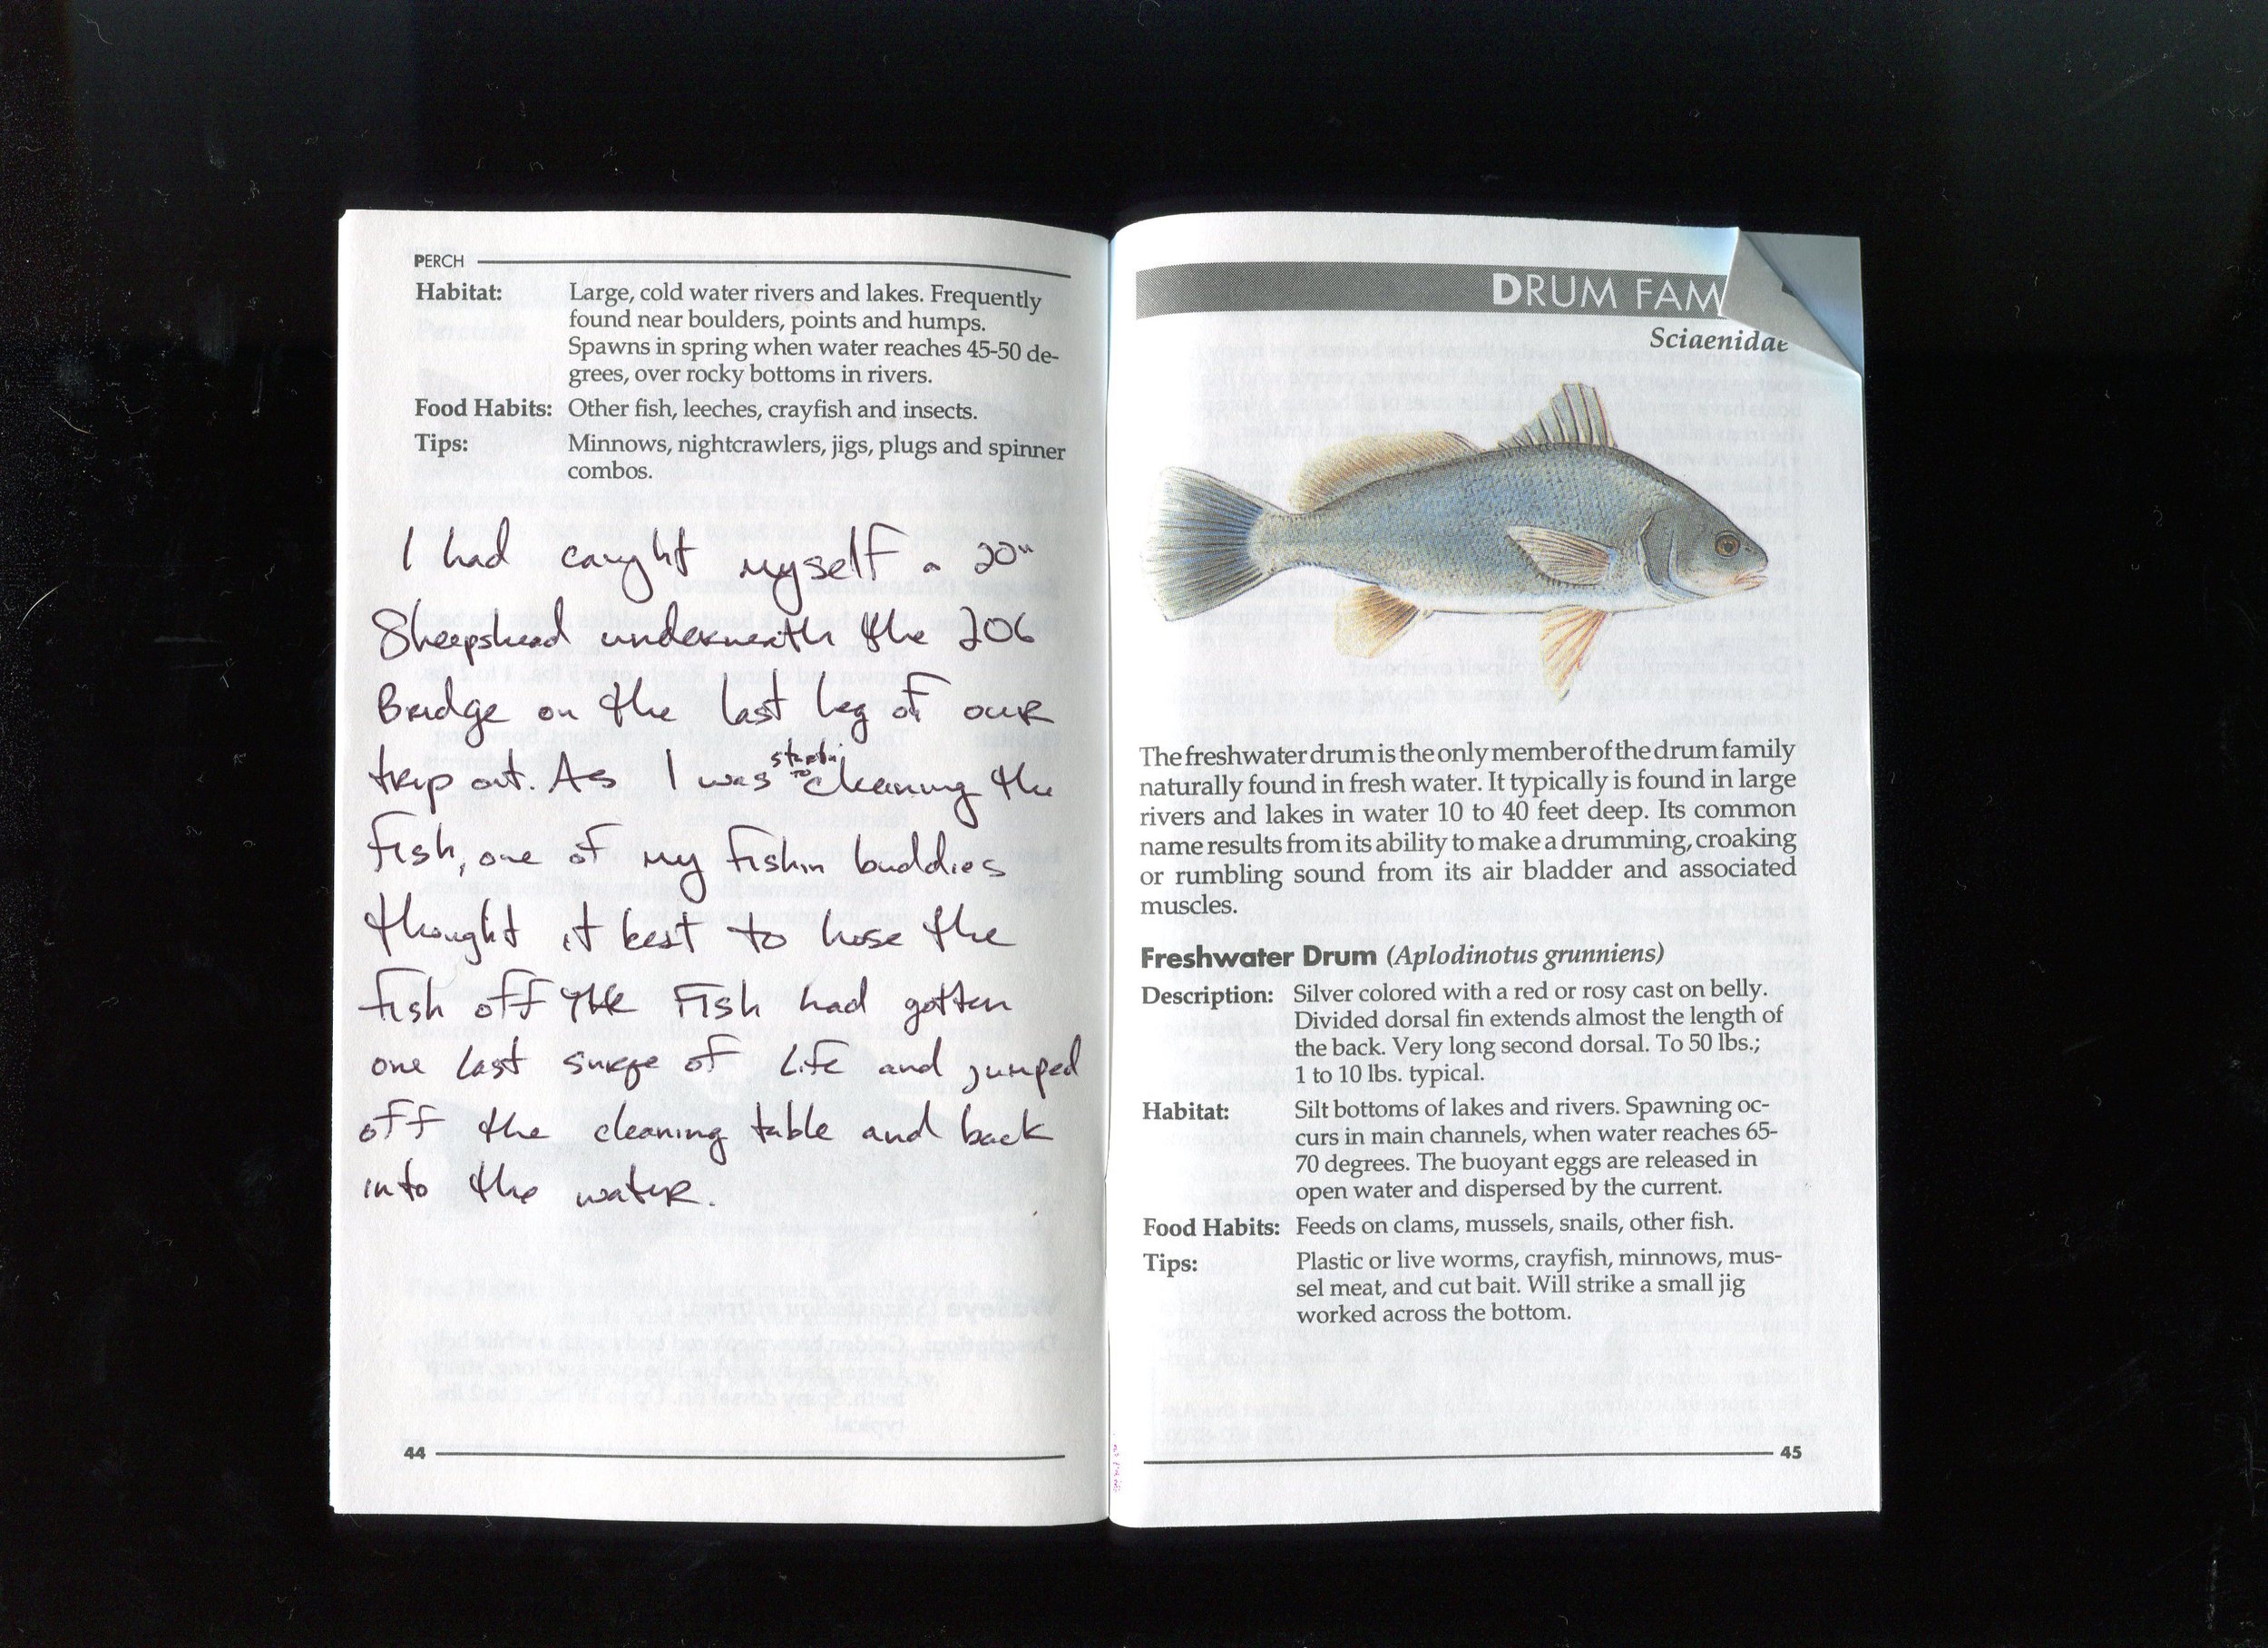 PERCH
Habitat: Large, cold water rivers and lakes. Frequently
found near boulders, points and humps.
Spawns in spring when water reaches 45-50 de-
grees, over rocky bottoms in rivers.
Food Habits: Other fish, leeches, crayfish and insects.
Tips: Minnows, nightcrawlers, jigs, plugs and spinner
combos.
I had caught myself a 20"
Sheepshead underneath the 206
Bridge on the last leg of our
trip out. As I was startin to cleaning the
fish, one of my fishin buddies
thought it best to hose the
fish off the Fish had gotten
one last surge of Life and jumped
off the cleaning table and back
into the water.
44
DRUM FAM
Sciaenidae
The freshwater drum is the only member of the drum family
naturally found in fresh water. It typically is found in large
rivers and lakes in water 10 to 40 feet deep. Its common
name results from its ability to make a drumming, croaking
or rumbling sound from its air bladder and associated
muscles.
Freshwater Drum (Aplodinotus grunniens)
Description: Silver colored with a red or rosy cast on belly.
Divided dorsal fin extends almost the length of
the back. Very long second dorsal. To 50 lbs.;
1 to 10 lbs. typical.
Habitat: Silt bottoms of lakes and rivers. Spawning oc-
curs in main channels, when water reaches 65-
70 degrees. The buoyant eggs are released in
open water and dispersed by the current.
Food Habits: Feeds on clams, mussels, snails, other fish.
Tips: Plastic or live worms, crayfish, minnows, mus-
sel meat, and cut bait. Will strike a small jig
worked across the bottom.
45